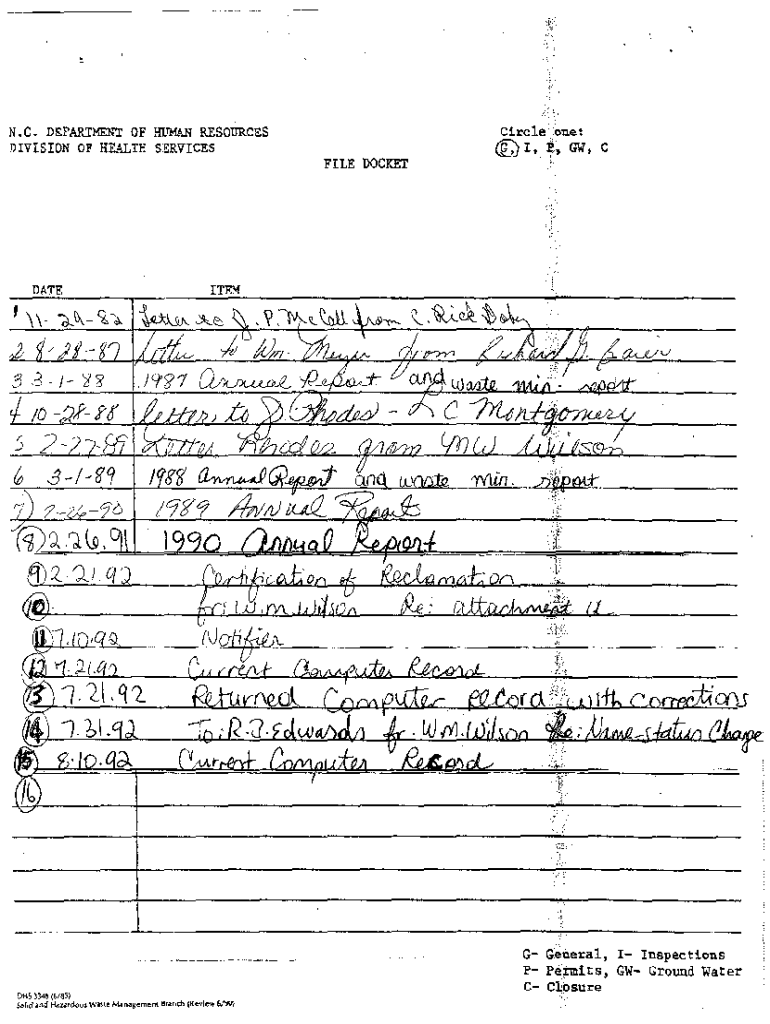 N.C. DEPARTMENT OF HUMAN RESOURCES
DIVISION OF HEALTH SERVICES
Circle one:
G, I, P, GW, C
FILE DOCKET
DATE ITEM
1 11-29-82 Letter to J. P. McCall from C. Rick Doby
2 8-28-87 Letter to Wm. Meyer from Richard G.
3 3-1-88 1987 Annual Report and waste min. report
4 10-28-88 letter to J Rhodes - L C Montgomery
5 2-27-89 Letter Rhodes from MW Wilson
6 3-1-89 1988 Annual Report and waste min. report
7) 2-26-90 1989 Annual Report
(8) 2.26.91 1990 Annual Report
(9) 2.21.92 Certification of Reclamation
(10) fr: W.M. Wilson Re: attachment
(11) 7.10.92 Notifier
(12) 7.21.92 Current Computer Record
(13) 7.21.92 Returned Computer record with corrections
(14) 7.31.92 To: R.J. Edwards fr. W.M. Wilson Re: Name-status Change
(15) 8.10.92 Current Computer Record
(16)
G- General, I- Inspections
P- Permits, GW- Ground Water
C- Closure
DHS 3348 (6/85)
Solid and Hazardous Waste Management Branch (Review 6/90)